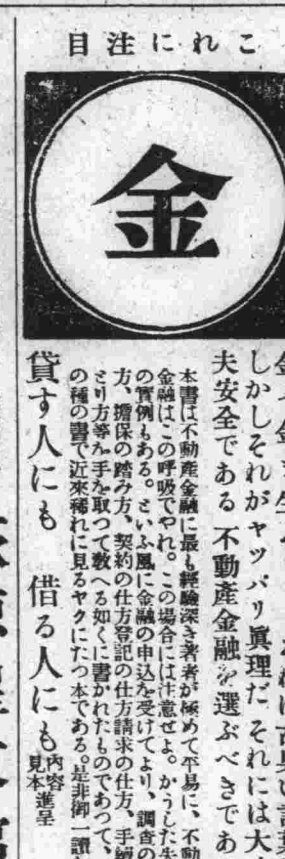 これに注目
金
しかしそれがヤツパリ眞理だ それには大
夫安全である 不動產金融を選ぶべきであ
本書は不動產金融に最も經驗深き著者が極めて平易に、不動
金融はこの呼吸でやれ。この場合には注意せよ。かうした失
の實例もある。といふ風に金融の申込を受けてより、調査の
方、擔保の踏み方、契約の仕方登記の仕方請求の仕方、手續
とり方等を手を取つて敎へる如くに書かれたものであつて、
の種の書で近來稀れに見るヤクにたつ本である。是非御一讀
貸す人にも 借る人にも
內容
見本 進呈